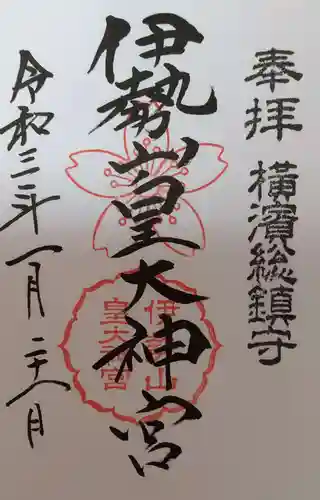 奉拝 横濱総鎮守
伊勢山皇大神宮
伊勢山
皇大神宮
令和三年一月二十八日